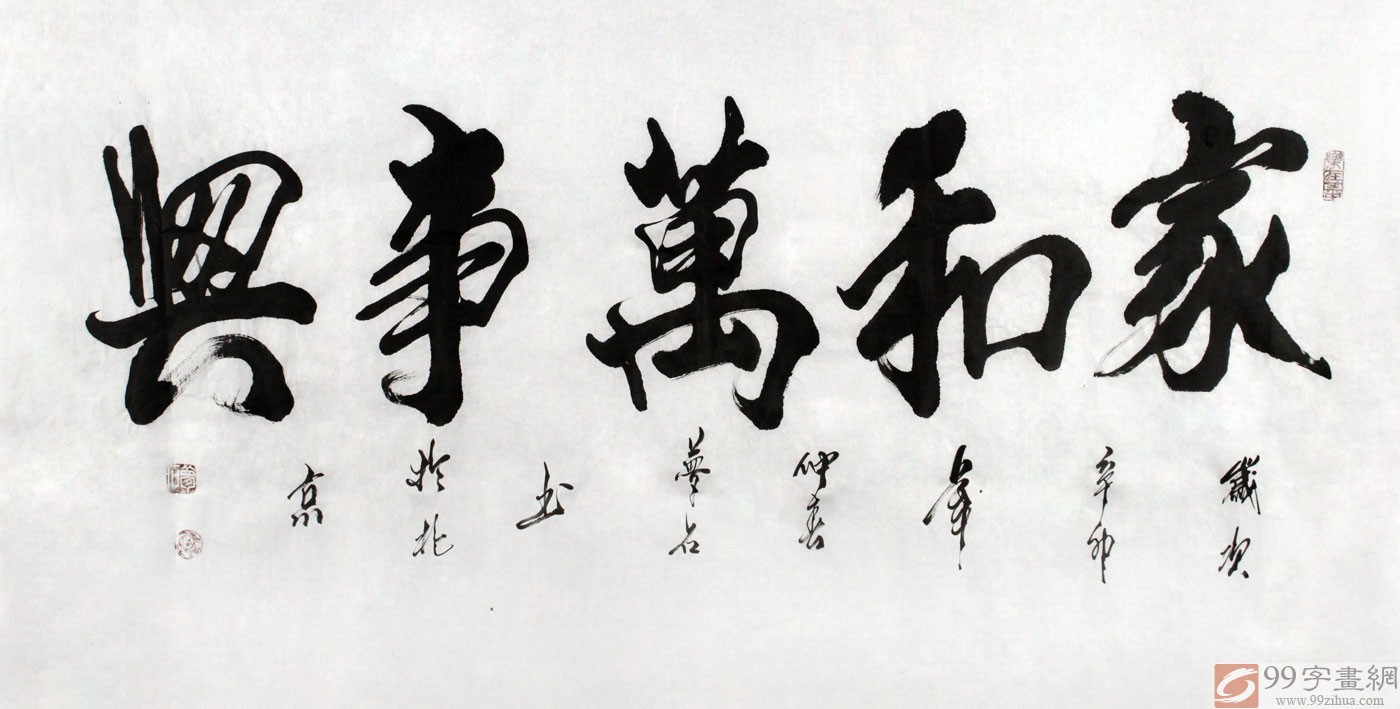 家和萬事興
歲次
辛卯
年
仲春
夢石
书
於北
京
99字畫網
www.99zihua.com